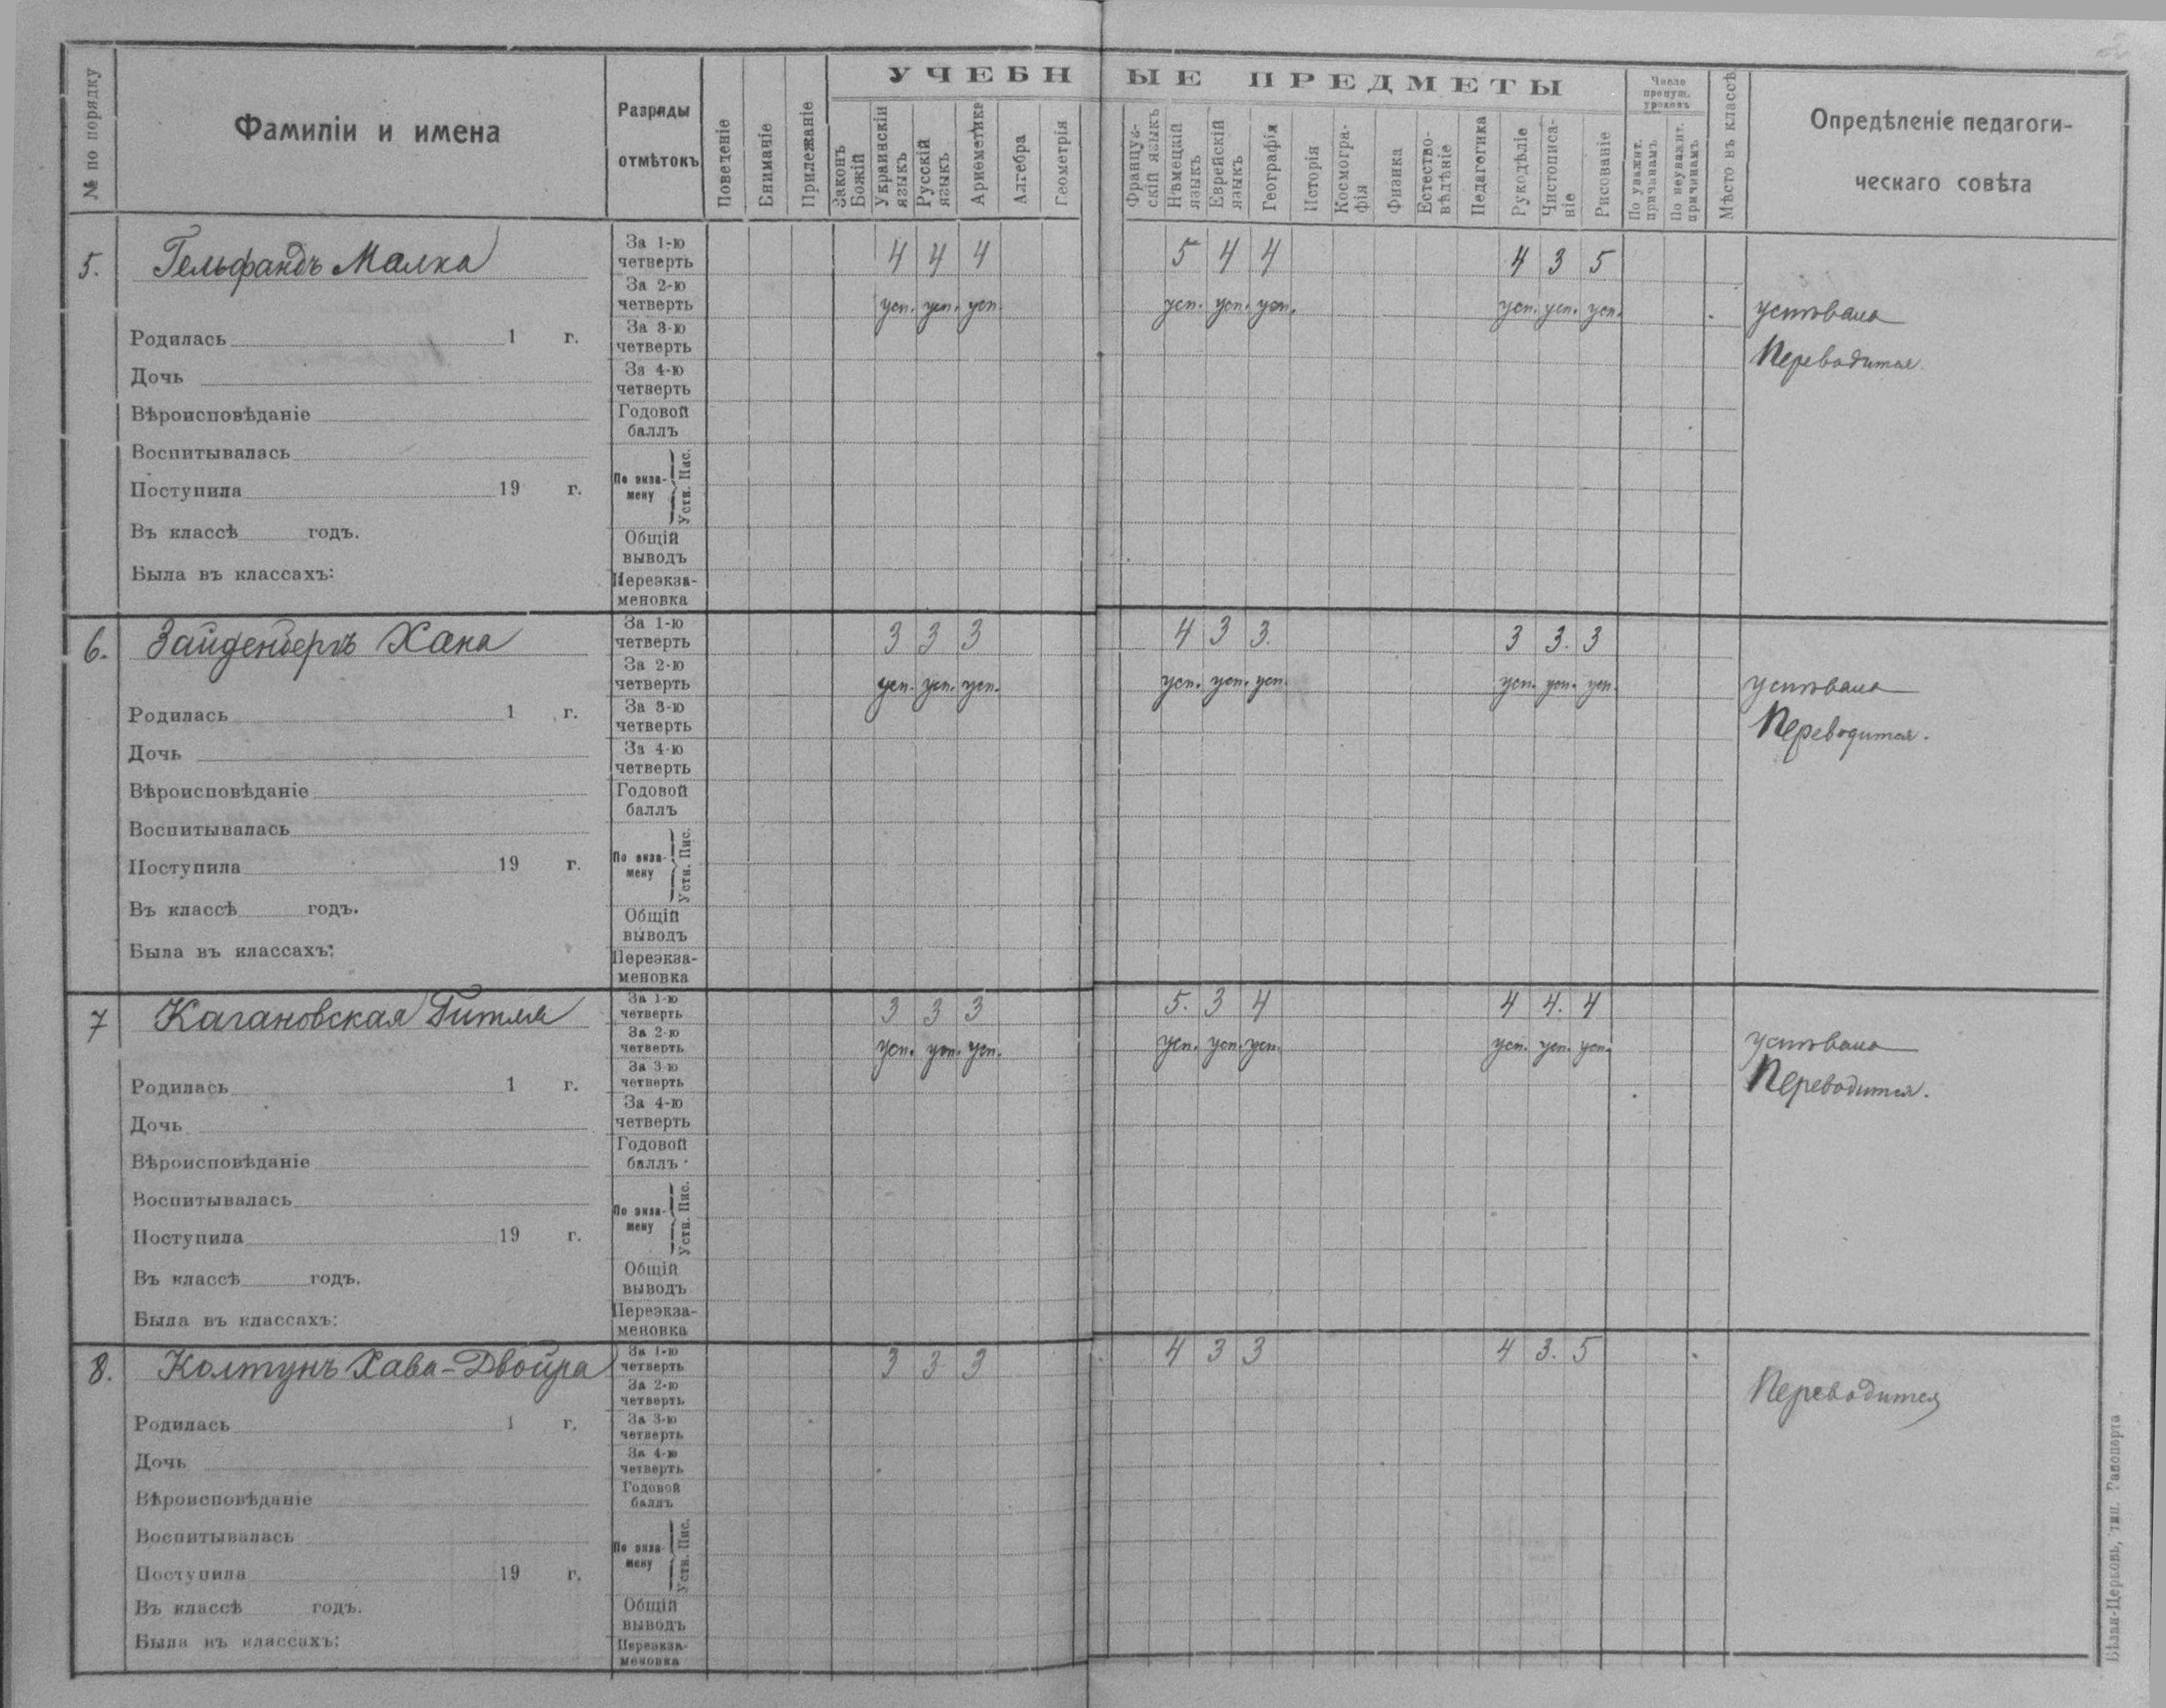 УЧЕБНЫЕ ПРЕДМЕТЫ
№ по порядку
Фамиліи и имена
Разряды отмѣтокъ
Поведеніе
Вниманіе
Прилежаніе
Законъ Божій
Украинскій языкъ
Русскій языкъ
Ариѳметика
Алгебра
Геометрія
Французскій языкъ
Нѣмецкій языкъ
Еврейскій языкъ
Географія
Исторія
Космографія
Физика
Естествовѣдѣніе
Педагогика
Рукодѣліе
Чистописаніе
Рисованіе
Число пропущ. уроковъ
По уважит. причинамъ
По неуважит. причинамъ
Мѣсто въ классѣ
Опредѣленіе педагоги-
ческаго совѣта
5. Гельфандъ Малка
За 1-ю четверть 4 4 4 5 4 4 4 3 5
За 2-ю четверть усп. усп. усп. усп. усп. усп. усп. усп. усп. успѣвала
Родилась 1 г.
За 3-ю четверть Переводится.
Дочь
За 4-ю четверть
Вѣроисповѣданіе
Годовой баллъ
Воспитывалась
Поступила 19 г.
По экзамену Устн. Пис.
Въ классѣ годъ.
Общій выводъ
Была въ классахъ:
Переэкзаменовка
6. Зайденбергъ Хана
За 1-ю четверть 3 3 3 4 3 3. 3 3. 3
За 2-ю четверть усп. усп. усп. усп. усп. усп. усп. усп. усп. успѣвала
Родилась 1 г.
За 3-ю четверть Переводится.
Дочь
За 4-ю четверть
Вѣроисповѣданіе
Годовой баллъ
Воспитывалась
Поступила 19 г.
По экзамену Устн. Пис.
Въ классѣ годъ.
Общій выводъ
Была въ классахъ:
Переэкзаменовка
7 Кагановская Гитля
За 1-ю четверть 3 3 3 5. 3 4 4 4. 4
За 2-ю четверть усп. усп. усп. усп. усп. усп. усп. усп. усп. успѣвала
Родилась 1 г.
За 3-ю четверть Переводится.
Дочь
За 4-ю четверть
Вѣроисповѣданіе
Годовой баллъ
Воспитывалась
Поступила 19 г.
По экзамену Устн. Пис.
Въ классѣ годъ.
Общій выводъ
Была въ классахъ:
Переэкзаменовка
8. Колтунъ Хава-Двойра
За 1-ю четверть 3 3 3 4 3 3 4 3. 5
За 2-ю четверть Переводится
Родилась 1 г.
За 3-ю четверть
Дочь
За 4-ю четверть
Вѣроисповѣданіе
Годовой баллъ
Воспитывалась
Поступила 19 г.
По экзамену Устн. Пис.
Въ классѣ годъ.
Общій выводъ
Была въ классахъ:
Переэкзаменовка
Бѣлая-Церковь, тип. Рапопорта